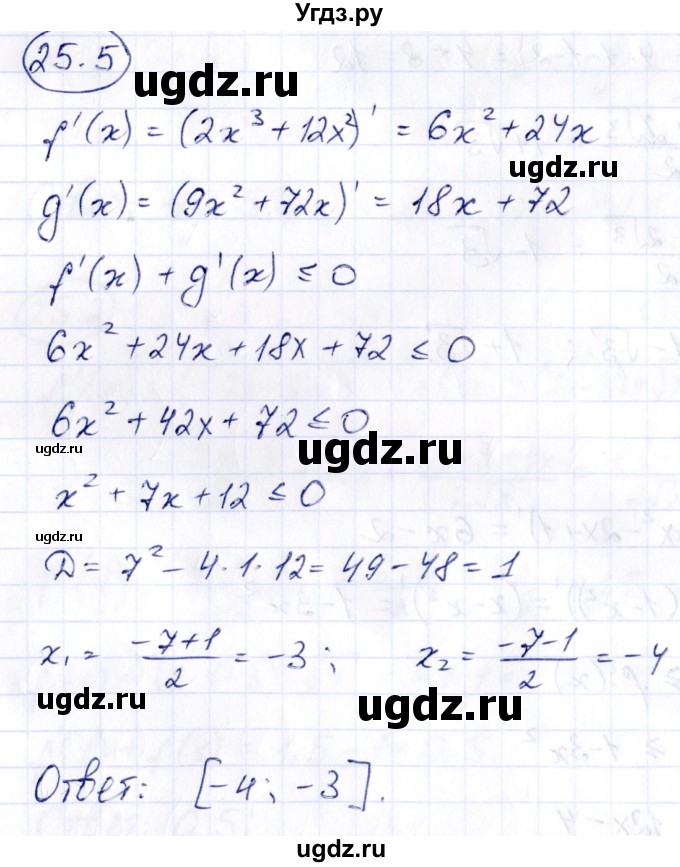 Угдз.ру
25.5
ugdz.ru
f'(x) = (2x³ + 12x²)' = 6x² + 24x
ugdz.ru
g'(x) = (9x² + 72x)' = 18x + 72
f'(x) + g'(x) ≤ 0
6x² + 24x + 18x + 72 ≤ 0
6x² + 42x + 72 ≤ 0
ugdz.ru
ugdz.ru
x² + 7x + 12 ≤ 0
ugdz.ru
Д = 7² - 4·1·12 = 49 - 48 = 1
x₁ = (-7+1)/2 = -3; x₂ = (-7-1)/2 = -4
ugdz.ru
ugdz.ru
Ответ: [-4; -3].
ugdz.ru